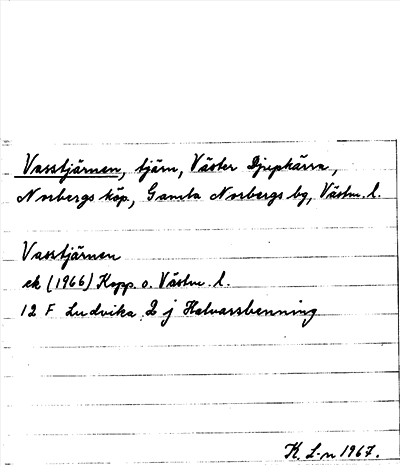 Vasstjärnen, tjärn, Väster Djupkärra,
Norbergs köp, Gamla Norbergs bg, Västm. l.
Vasstjärnen
ek (1966) Kopp. o. Västm. l.
12 F Ludvika 2 j Halvarsbenning
K. L-n 1967.